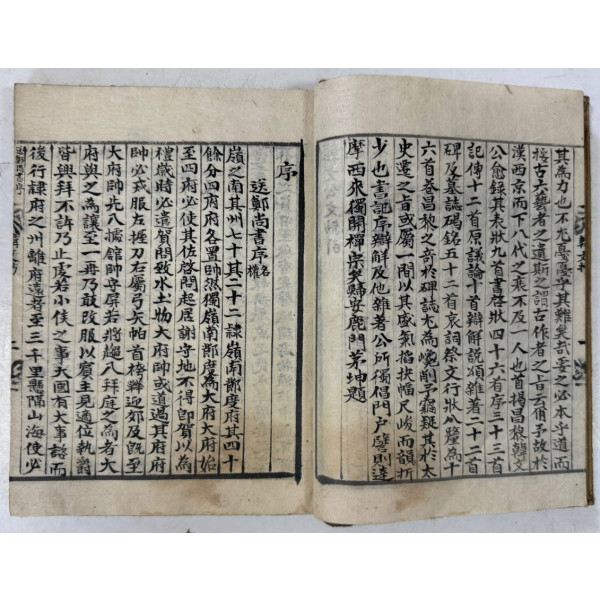 其爲力也不尤憂憂乎其難矣哉要之必本乎道而
按古六藝者之遺斯之謂古作者之旨云爾予故於
漢西京而下八代之衰不及一人也首揭昌黎韓文
公愈錄其表狀九首書啓狀四十六首序三十三首
記傳十二首原議論十首辯解說頌雜著二十二首
碑及墓誌碣銘五十二首哀詞祭文行狀八釐為十
六首卷昌黎之奇於碑誌尤為巉削予竊疑其於太
史遷之旨或屬一間以其盛氣搯抉幅尺峻而韻折
少也書記序辯解及他雜著公所獨倡門戶譬則達
摩西來獨開禪宗矣歸安鹿門茅坤題
序
送鄭尚書序名權
嶺之南其州七十其二十二隸嶺南節度府其四十
餘分四府府各置帥然獨嶺南節度為大府大府始
至四府必使其佐啓問起居謝守地不得即賀以為
禮歲時必遣賀問致水土物大府帥或道過其府府
帥必戎服左握刀右屬弓矢帕首袴鞾迎郊及既至
大府帥先入據館帥守屏若將趨入拜庭之為者大
府與之為讓至一再乃敢改服以賓主見適位執爵
皆興拜不許乃止虔若小侯之事大國有大事諮而
後行隸府之州離府遠者至三千里懸隔山海使必